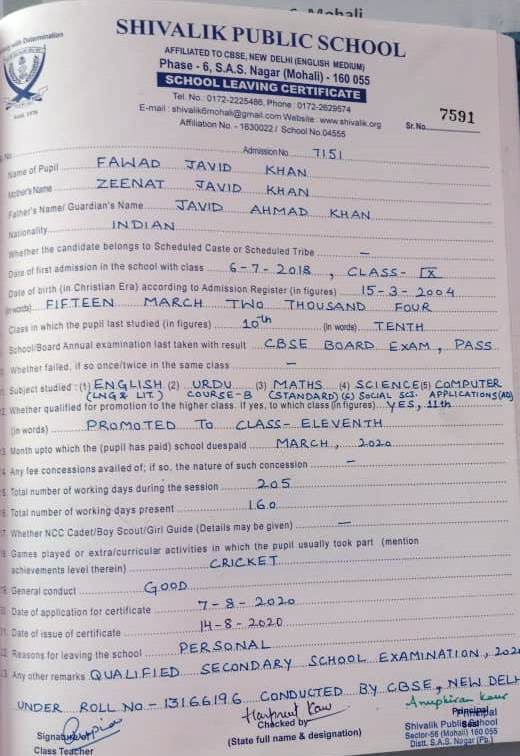 Mohali
with Determination
Estd. 1976
SHIVALIK PUBLIC SCHOOL
AFFILIATED TO CBSE, NEW DELHI (ENGLISH MEDIUM)
Phase - 6, S.A.S. Nagar (Mohali) - 160 055
SCHOOL LEAVING CERTIFICATE
Tel. No : 0172-2225486, Phone : 0172-2629574
E-mail : shivalik6mohali@gmail.com Website : www.shivalik.org
Affiliation No. - 1630022 / School No.04555
Sr. No. 7591
No. Admission No. 7151
Name of Pupil FAWAD JAVID KHAN
Mother's Name ZEENAT JAVID KHAN
Father's Name/ Guardian's Name JAVID AHMAD KHAN
Nationality INDIAN
Whether the candidate belongs to Scheduled Caste or Scheduled Tribe –
Date of first admission in the school with class 6-7-2018, CLASS- IX
Date of birth (in Christian Era) according to Admission Register (in figures) 15-3-2004
(in words) FIFTEEN MARCH TWO THOUSAND FOUR
Class in which the pupil last studied (in figures) 10th (in words) TENTH
School/Board Annual examination last taken with result CBSE BOARD EXAM, PASS
Whether failed, if so once/twice in the same class –
Subject studied : (1) ENGLISH (2) URDU (3) MATHS (4) SCIENCE (5) COMPUTER
(LNG & LIT.) COURSE-B (STANDARD) (6) SOCIAL SCI. APPLICATIONS (AD)
2. Whether qualified for promotion to the higher class. If yes, to which class (in figures) YES, 11th
(in words) PROMOTED TO CLASS-ELEVENTH
3. Month upto which the (pupil has paid) school duespaid MARCH, 2020
4. Any fee concessions availed of; if so, the nature of such concession –
5. Total number of working days during the session 205
6. Total number of working days present 160
7. Whether NCC Cadet/Boy Scout/Girl Guide (Details may be given) –
8. Games played or extra/curricular activities in which the pupil usually took part (mention
achievements level therein) CRICKET
19. General conduct GOOD
20. Date of application for certificate 7-8-2020
21. Date of issue of certificate 14-8-2020
22. Reasons for leaving the school PERSONAL
23. Any other remarks QUALIFIED SECONDARY SCHOOL EXAMINATION, 202
UNDER ROLL NO - 13166196 CONDUCTED BY CBSE, NEW DELH
Harpreet Kaur
Anupkiran Kaur
Signature of
Class Teacher
Checked by
(State full name & designation)
Principal
Principal
Seal
Shivalik Public School
Sector-56 (Mohali) 160 055
Distt. S.A.S. Nagar (Pb.)